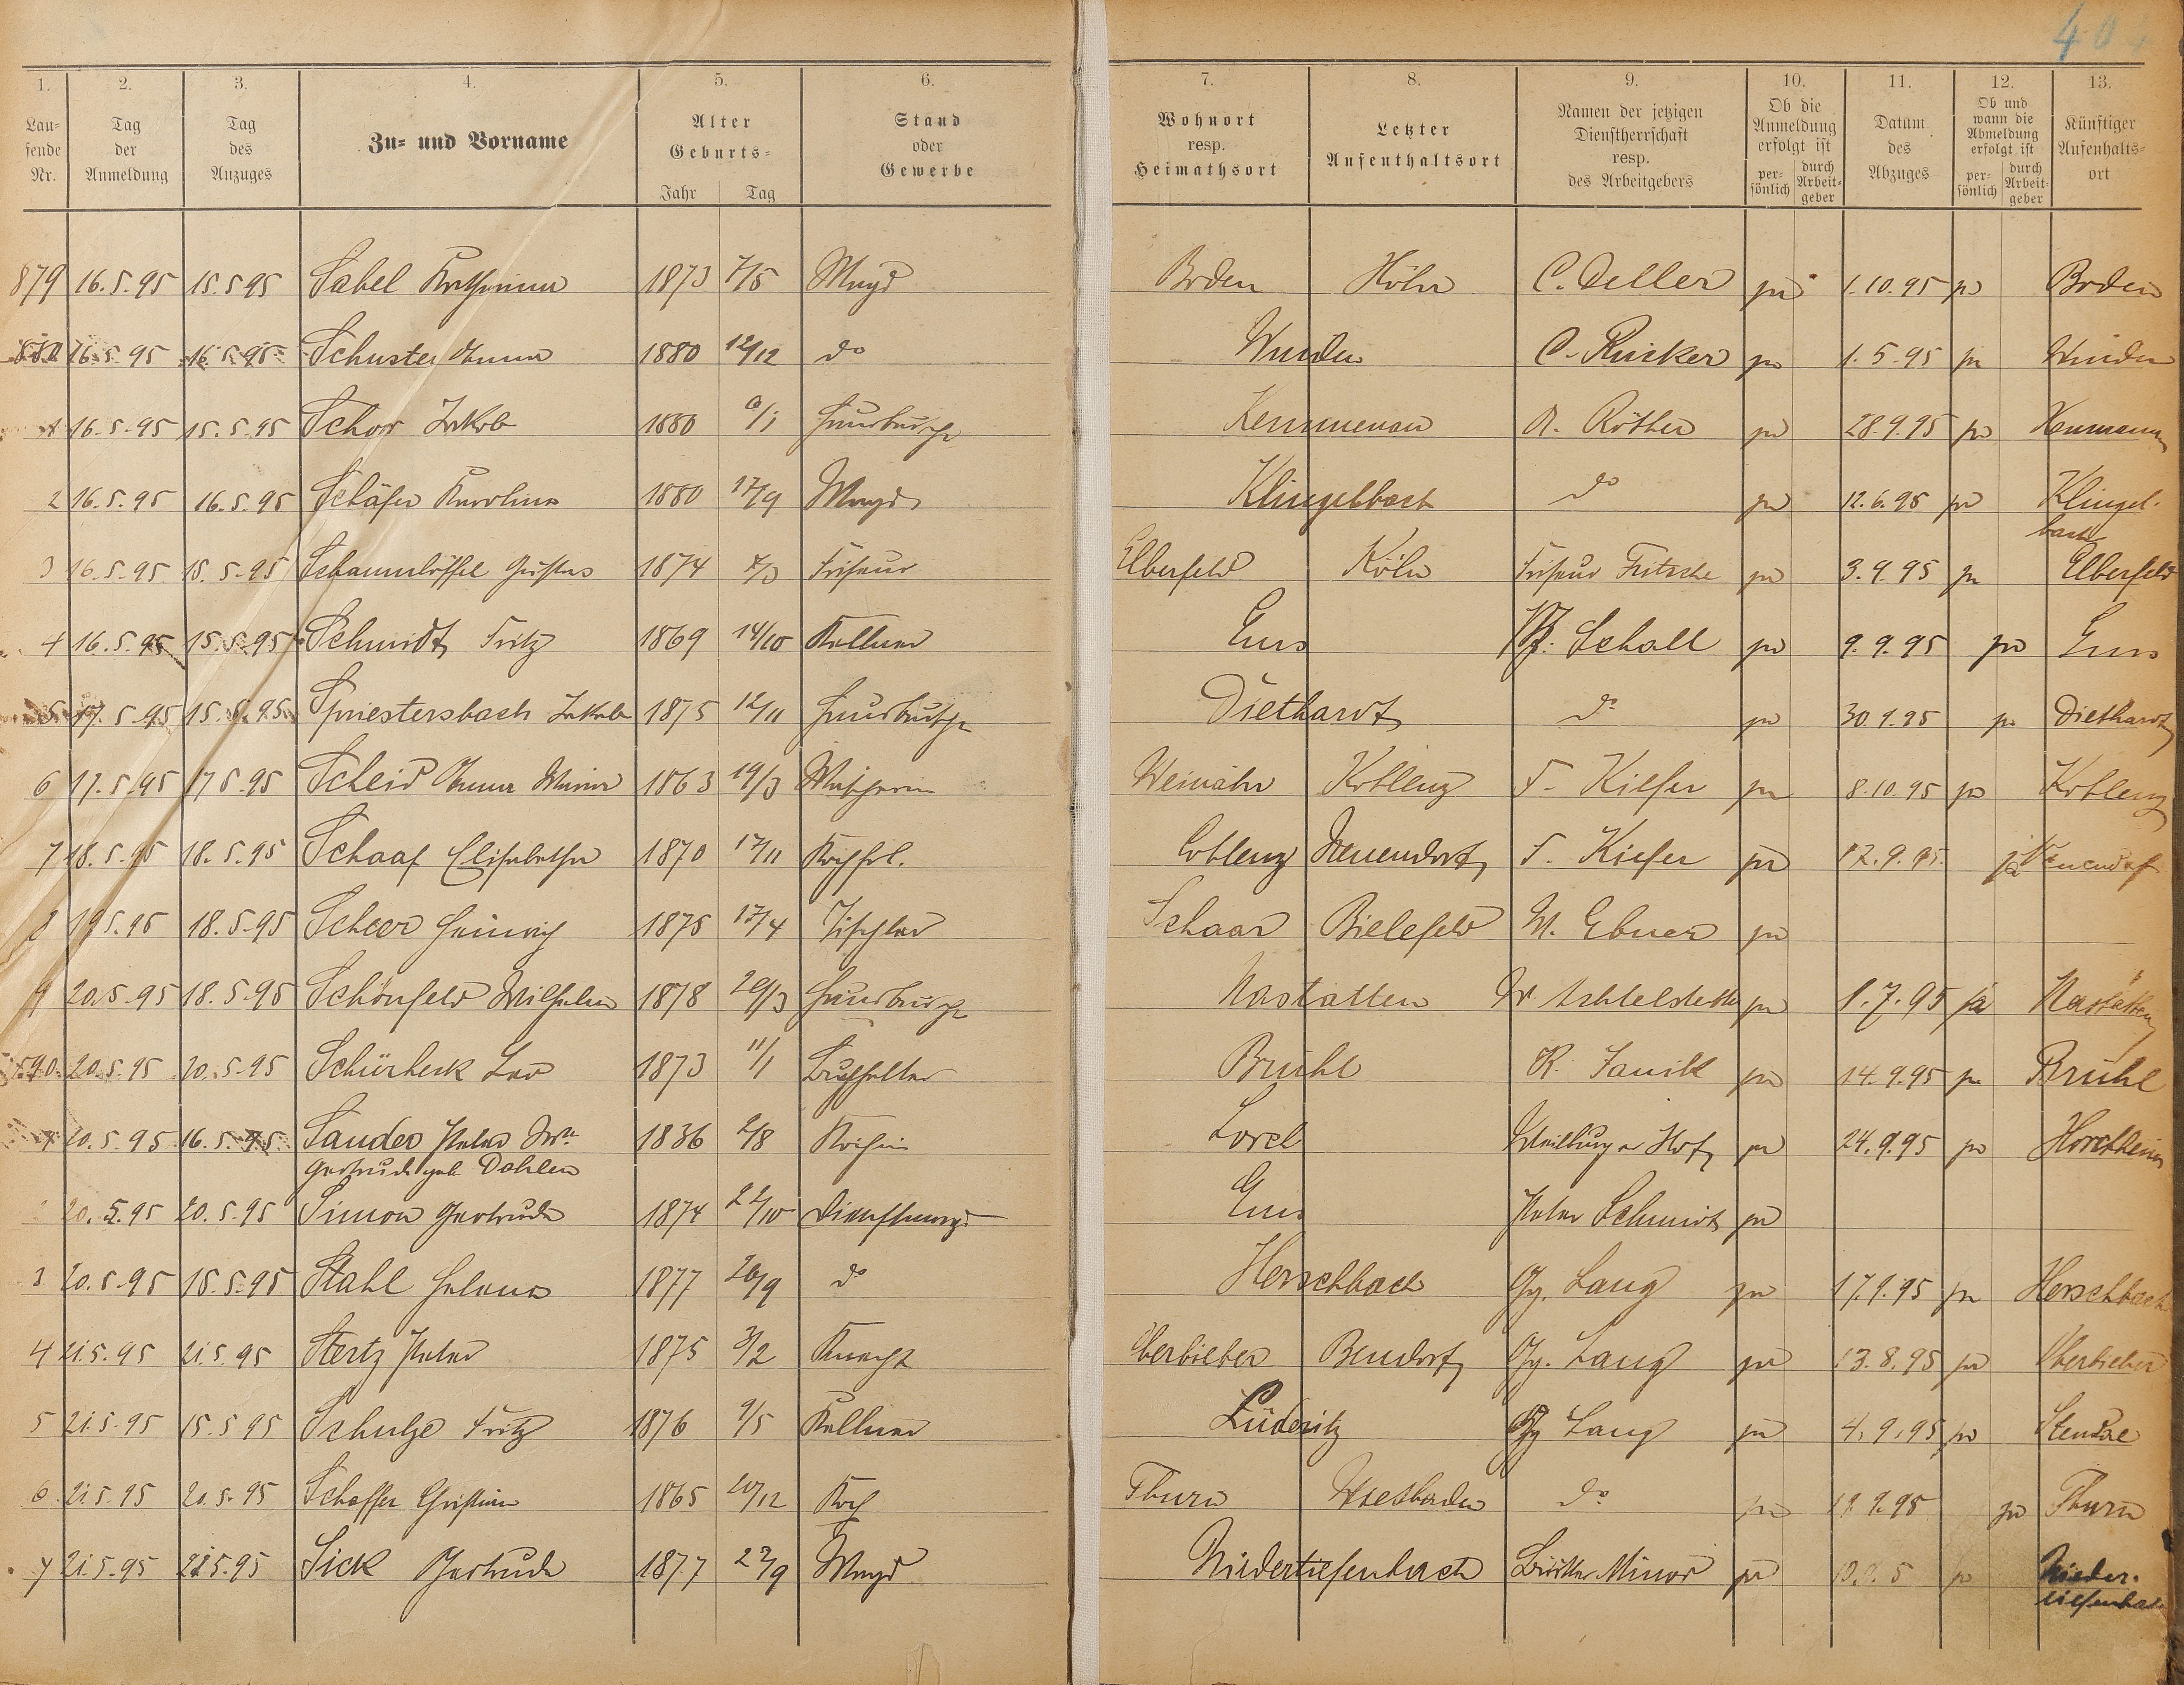 40
1. 2. 3. 4. 5. 6. 7. 8. 9. 10. 11. 12. 13.
Laufende Nr. Tag der Anmeldung Tag des Anzuges Zu- und Vorname Alter Geburts- Jahr Tag Stand oder Gewerbe Wohnort resp. Heimathsort Letzter Aufenthaltsort Namen der jetzigen Dienstherrschaft resp. des Arbeitgebers Ob die Anmeldung erfolgt ist persönlich durch Arbeitgeber Datum des Abzuges Ob und wann die Abmeldung erfolgt ist persönlich durch Arbeitgeber Künftiger Aufenthaltsort
879 16.5.95 15.5.95 Sabel Katharina 1873 7/5 Magd Boden Höhr C. Deller ja 1.10.95 ja Boden
16.5.95 16.5.95 Schuster Anna 1880 12/12 do Winden C. Rücker ja 1.5.95 ja Winden
1 16.5.95 15.5.95 Schor Jakob 1880 6/1 Hausbursche Kemmenau A. Röther ja 28.9.95 ja
2 16.5.95 16.5.95 Schäfer Karolina 1880 17/9 Magd Klingelbach do ja 12.6.95 ja Klingel-
bach
3 16.5.95 15.5.95 Schaumlöffel Gustav 1874 Friseur Elberfeld Köln Friseur Fritsche ja 3.9.95 ja Elberfeld
4 16.5.95 15.5.95 Schmidt Fritz 1869 14/10 Kellner Ems Schall ja 9.9.95 ja Ems
5 17.5.95 15.5.95 Spriestersbach Jakob 1875 12/11 Hausbursche Diethardt do ja 30.9.95 ja Diethardt
6 17.5.95 17.5.95 Scheid Anna Maria 1863 19/3 Wäscherin Weinähr Koblenz F. Kiefer ja 8.10.95 ja Koblenz
7 18.5.95 18.5.95 Schaaf Elisabetha 1870 17/11 Kochfrl. Coblenz Neuendorf F. Kiefer ja 12.9.95 ja Neuendorf
8 19.5.95 18.5.95 Scheer Heinrich 1875 17/4 Tischler Schaar Bielefeld W. Ebner ja
9 20.5.95 18.5.95 Schönfeld Wilhelm 1878 29/3 Hausbursche Nastätten ja 1.7.95 ja Nastätten
590 20.5.95 20.5.95 Leo 1873 11/1 Buchhalter Brühl R. ja 14.9.95 ja Brühl
1 20.5.95 16.5.95 Sauder Peter Ww. 1836 2/8 Köchin Lorch Weilburger Hof ja 24.9.95 ja Horchheim
Gertrude geb. Dahlen
20.5.95 20.5.95 Simon Gertrude 1874 22/10 Dienstmagd Ems Peter Schmidt ja
3 20.5.95 18.5.95 Stahl Helena 1877 26/9 do Herschbach Gg. Lang ja 17.9.95 ja Herschbach
4 21.5.95 21.5.95 Stertz Peter 1875 3/2 Knecht Oberbieber Bendorf Gg. Lang ja 13.8.95 ja Oberbieber
5 21.5.95 15.5.95 Schulze Fritz 1876 9/5 Kellner Lüderitz Gg Lang ja 4.9.95 ja Stendal
6 21.5.95 20.5.95 Schaffer Christian 1865 20/12 Koch Thurn Wiesbaden do ja 19.9.95 ja Thurn
7 21.5.95 21.5.95 Sick Gertrude 1877 27/9 Magd Niedertiefenbach Minor ja ja Nieder-
tiefenbach